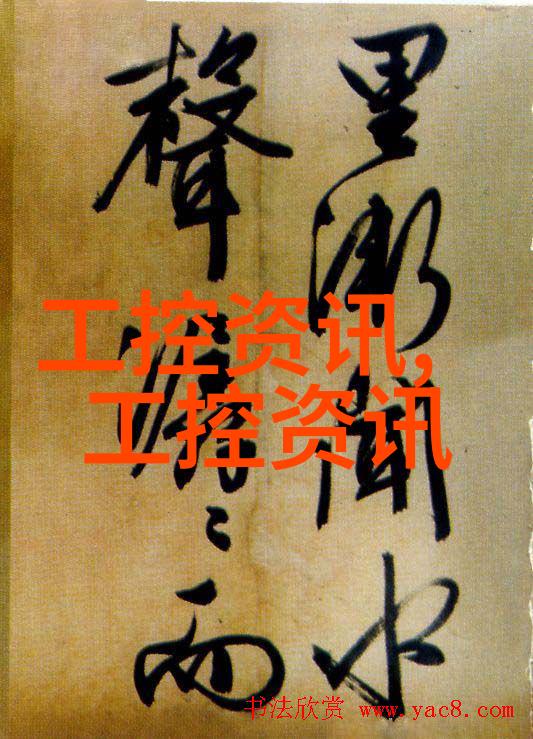 里漸聞水
聲潺〻而
工控资讯,
工控资讯
书法欣赏 www.yac8.com